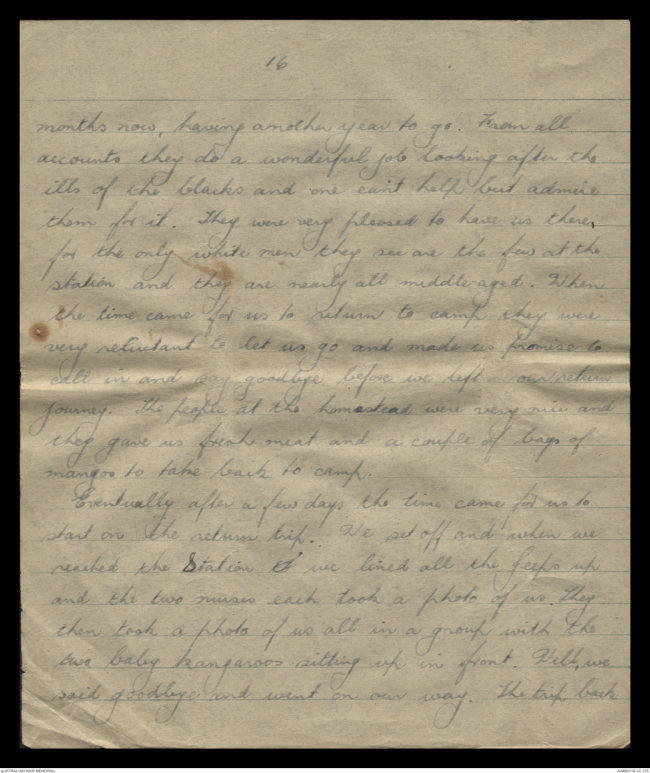 16
months now, having another year to go. From all
accounts they do a wonderful job looking after the
ills of the blacks and one can't help but admire
them for it. They were very pleased to have us there,
for the only white men they see are the few at the
station and they are nearly all middle-aged. When
the time came for us to return to camp they were
very reluctant to let us go and made us promise to
call in and say goodbye before we left on our return
journey. The people at the homestead were very nice and
they gave us fresh meat and a couple of bags of
mangos to take back to camp.
Eventually after a few days the time came for us to
start on the return trip. We set off and when we
reached the Station we lined all the jeeps up
and the two nurses each took a photo of us. They
then took a photo of us all in a group with the
two baby kangaroos sitting up in front. Well, we
said goodbye and went on our way. The trip back
AUSTRALIAN WAR MEMORIAL